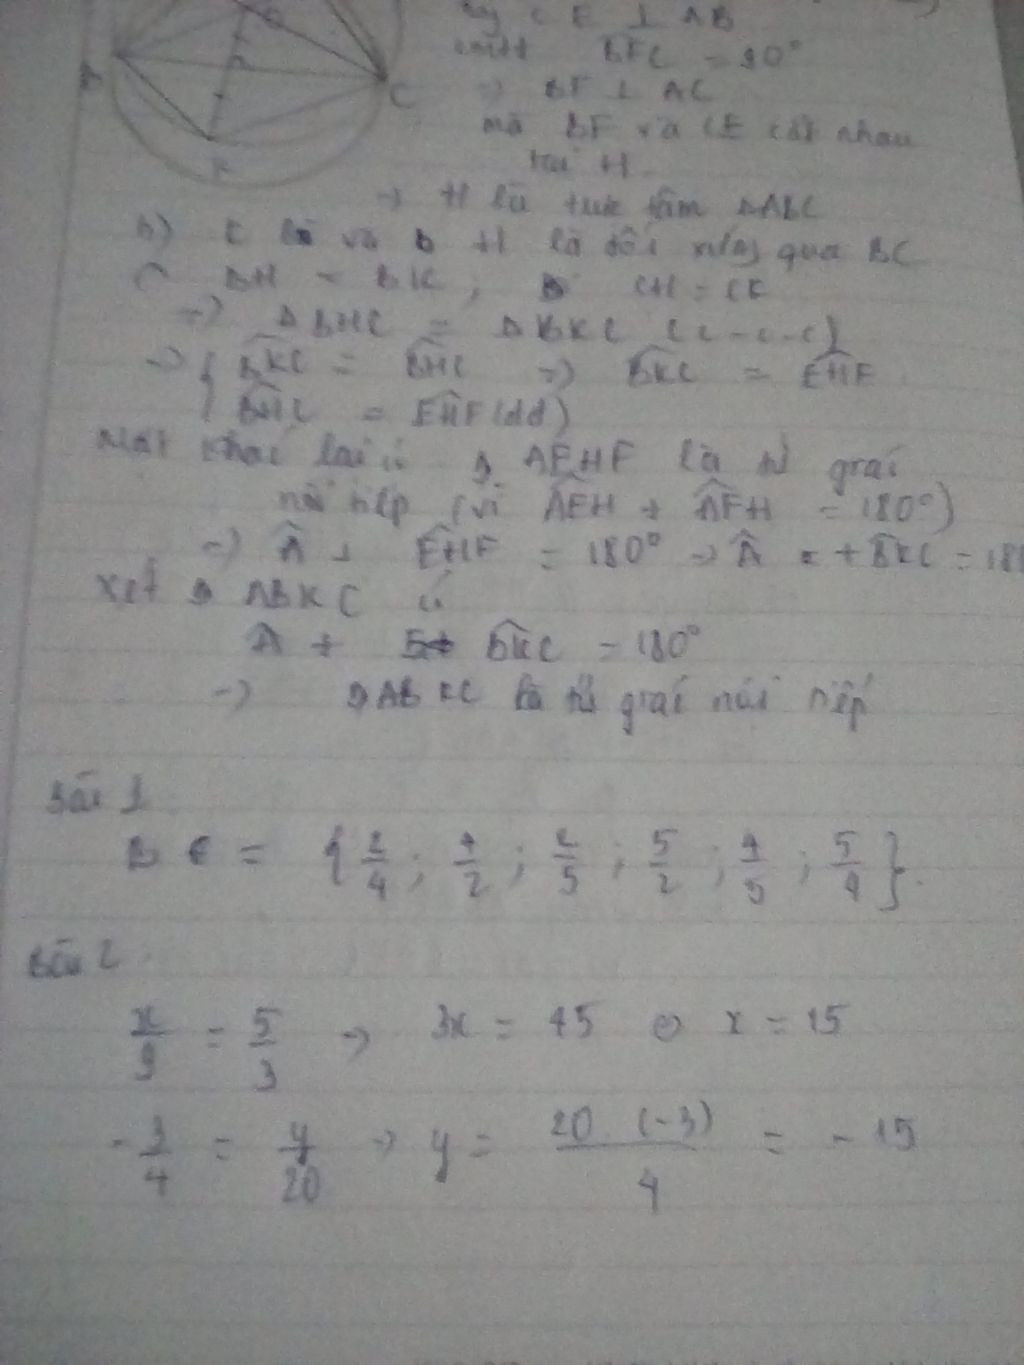 C E ⊥ AB
BFC = 90°
=> BF ⊥ AC
mà BF và CE cắt nhau
tại H
=> H là trực tâm ΔABC
b) K và H là đối xứng qua BC
=> BH = BK ; CH = CK
=> ΔBHC = ΔBKC (c-c-c)
=> { BKC = BHC => BKC = EHF
BHC = EHF (dd)
Mặt khác lại có AEHF là tứ giác
nội tiếp (vì AEH + AFH = 180°)
=> Â + EHF = 180° => Â + BKC = 18
xét ABKC có
Â + BKC = 180°
=> ABKC là tứ giác nội tiếp
Bài 1
B = {2/4 ; 4/2 ; 2/5 ; 5/2 ; 4/5 ; 5/4}.
Bài 2
x/9 = 5/3 => 3x = 45 <=> x = 15
-3/4 = y/20 => y = 20.(-3)/4 = -15
A
B
C
K